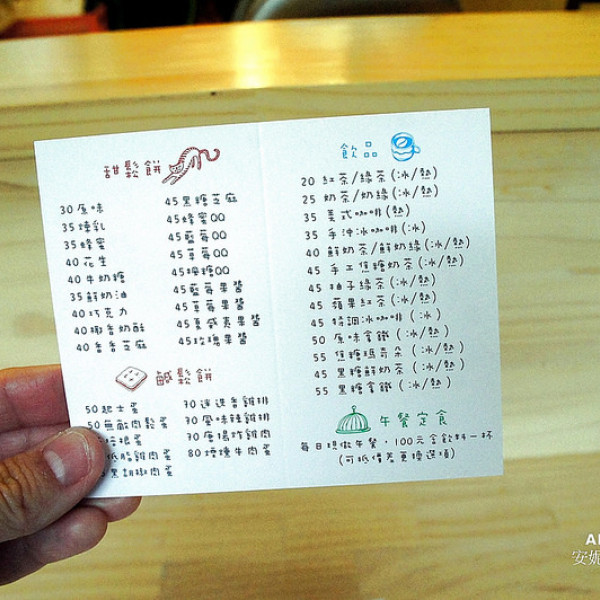 甜鬆餅
30 原味
35 煉乳
35 蜂蜜
40 花生
40 牛奶糖
35 鮮奶油
40 巧克力
40 椰香奶酥
40 香香芝麻
45 黑糖芝麻
45 蜂蜜QQ
45 藍莓QQ
45 草莓QQ
45 楓糖QQ
45 藍莓果醬
45 草莓果醬
45 夏威夷果醬
45 玫瑰果醬
鹹鬆餅
50 起士蛋
50 無敵肉鬆蛋
培根蛋
低脂雞肉蛋
黑胡椒肉蛋
70 迷迭香雞排
70 風味辣雞排
70 唐揚炸雞肉
80 煙燻牛肉蛋
飲品
20 紅茶/綠茶(冰/熱)
25 奶茶/奶綠(冰/熱)
35 美式咖啡(熱)
35 手沖冰咖啡(冰)
40 鮮奶茶/鮮奶綠(冰/熱)
45 手工焦糖奶茶(冰/熱)
45 柚子綠茶(冰/熱)
45 蘋果紅茶(冰/熱)
45 特調冰咖啡(冰)
50 原味拿鐵(冰/熱)
55 焦糖瑪奇朵(冰/熱)
45 黑糖鮮奶茶(冰/熱)
55 黑糖拿鐵(冰/熱)
午餐定食
每日現做午餐，100元含飲料一杯
(可抵價差更換選項)
安妮